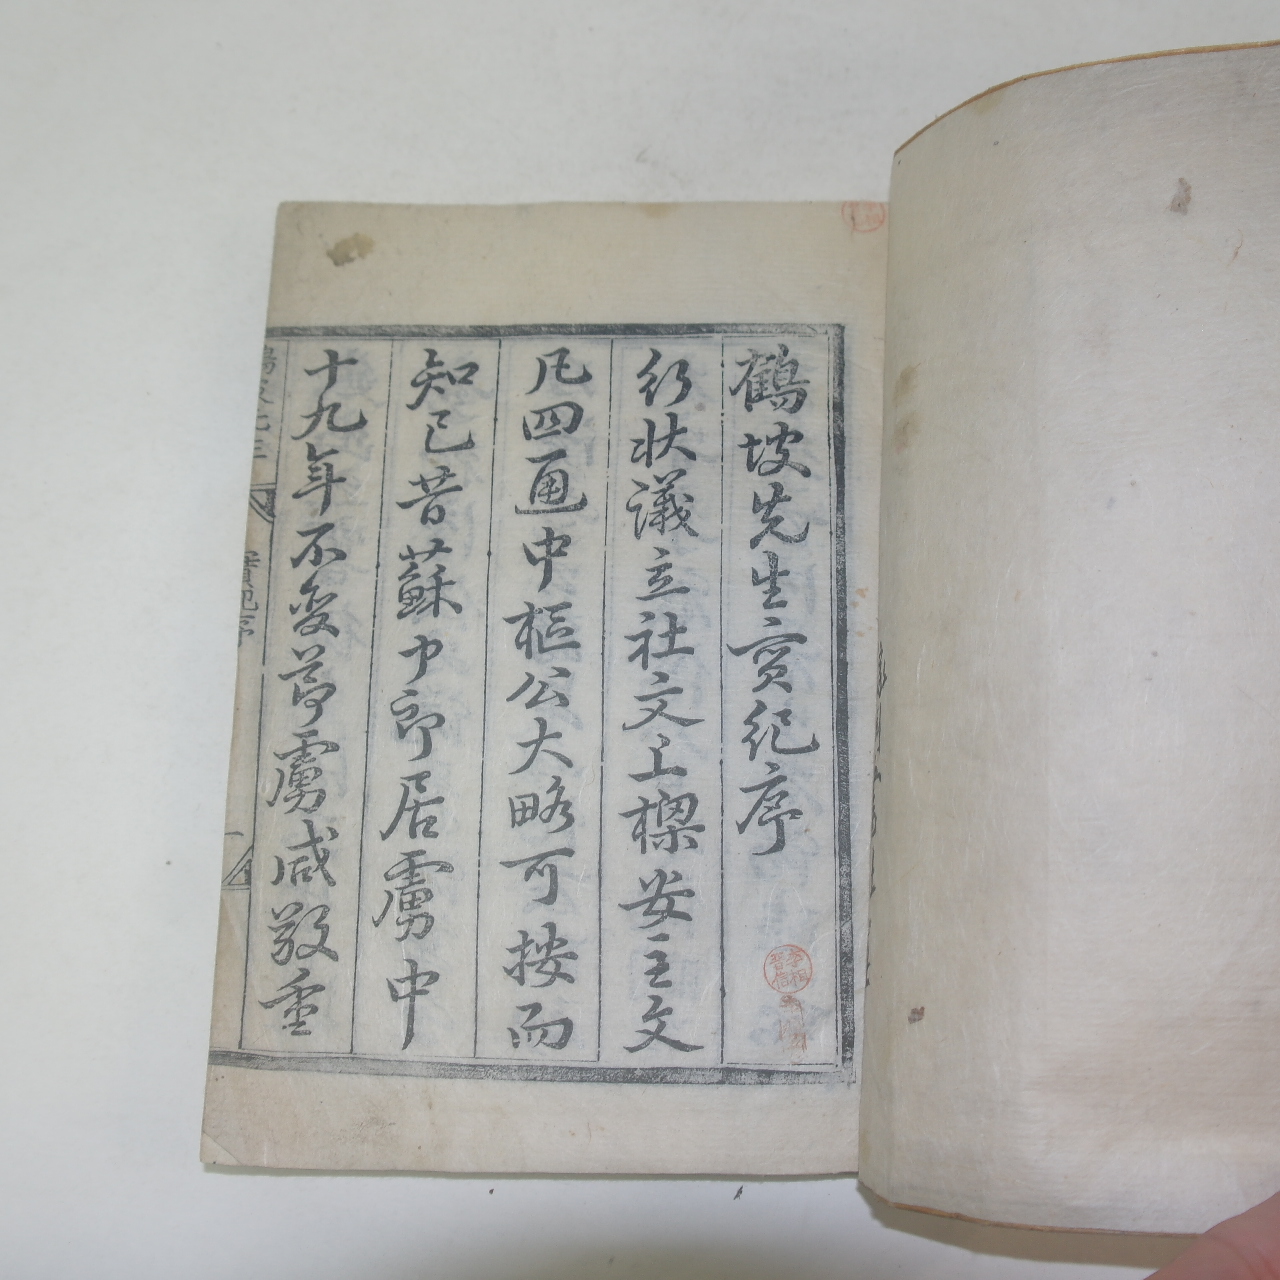 鶴坡先生實紀序
行狀議立社文上樑安主文
凡四通中樞公大略可按而
知已昔蘇中郎居虜中
十九年不變節虜咸敬重
實紀序